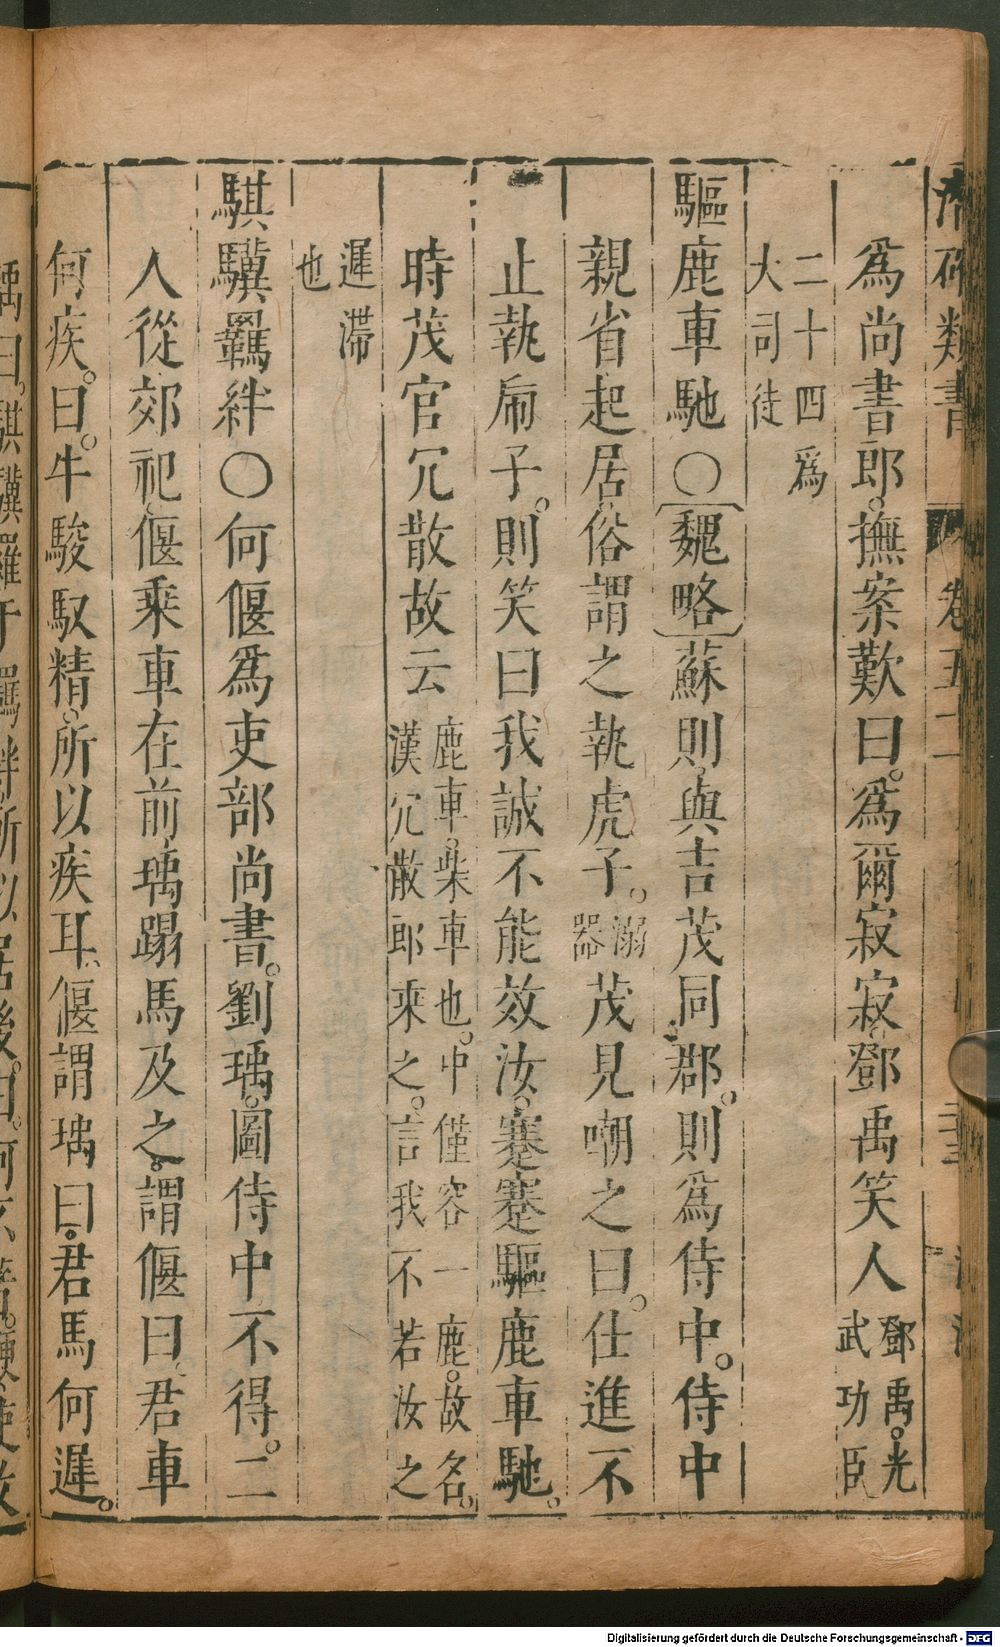 潛確類書 卷五二
爲尚書郎。撫案歎曰。爲爾寂寂。鄧禹笑人 鄧禹。光武功臣
二十四爲大司徒
驅鹿車馳〇〔魏略〕蘇則與吉茂同郡。則爲侍中。侍中
親省起居。俗謂之執虎子。溺器 茂見嘲之曰。仕進不
止執虎子。則笑曰我誠不能效汝。蹇蹇驅鹿車馳。
時茂官冗散故云 鹿車。柴車也。中僅容一鹿。故名。漢冗散郎乘之。言我不若汝之
遲滯也
騏驥羈絆〇何偃爲吏部尚書。劉瑀。圖侍中不得。二
人從郊祀。偃乘車在前。瑀蹋馬及之。謂偃曰。君車
何疾。曰。牛駿馭精。所以疾耳。偃謂瑀曰。君馬何遲。
瑀曰。騏驥羅于羈絆所以居後。曰。何不